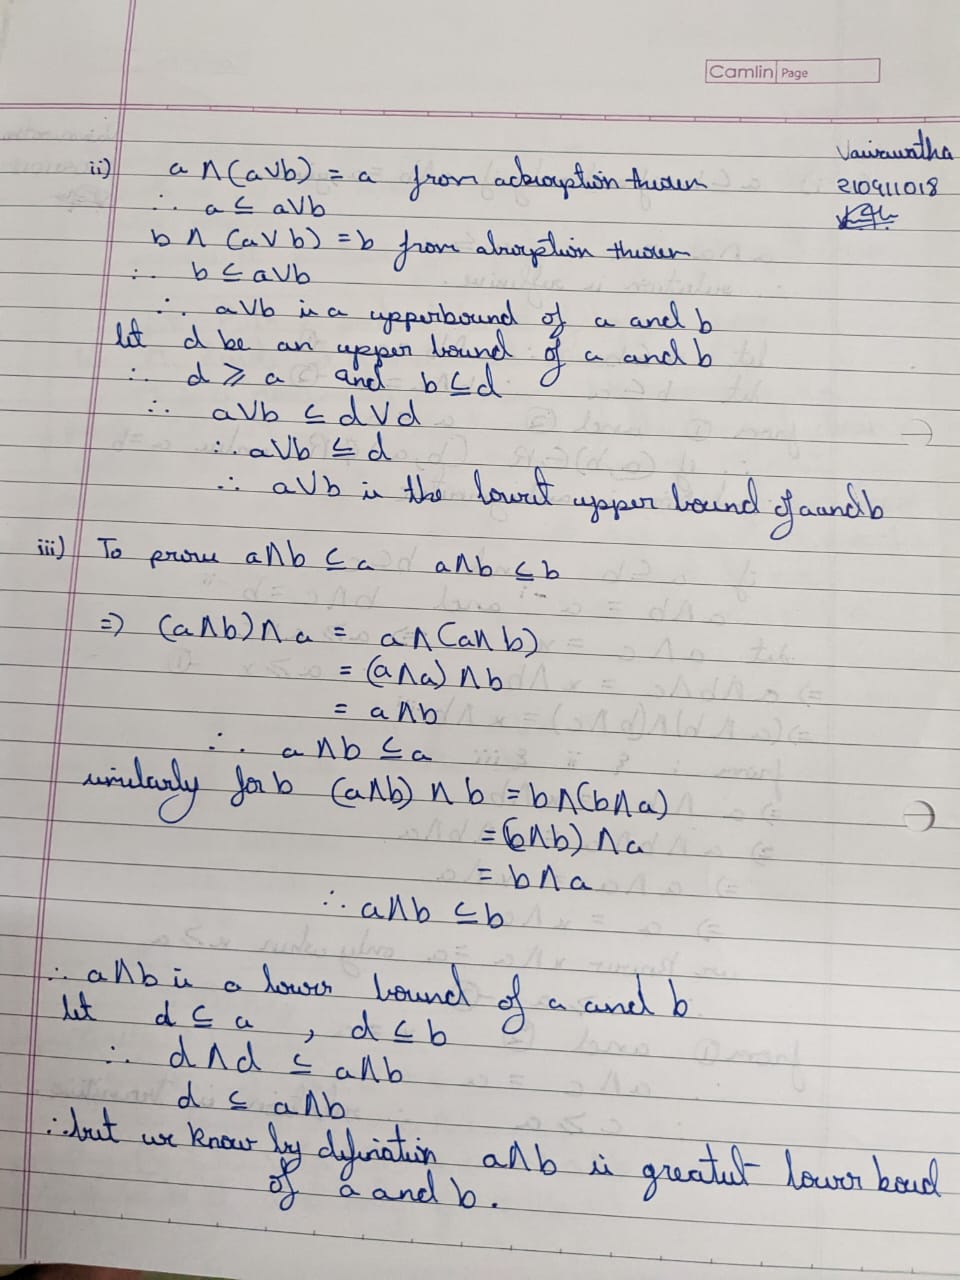 Camlin Page
Vaiswatha
210911018
ii) a ∧ (a∨b) = a from adsorption theorem
∴ a ≤ a∨b
b ∧ (a∨b) = b from absorption theorem
∴ b ≤ a∨b
∴ a∨b is a upperbound of a and b
let d be an upper bound of a and b
∴ d ⩾ a and b ≤ d
∴ a∨b ≤ d∨d
∴ a∨b ≤ d
∴ a∨b is the lowest upper bound of a and b
iii) To prove a∧b ≤ a a∧b ≤ b
⇒ (a∧b)∧a = a∧(a∧b)
= (a∧a)∧b
= a∧b
∴ a∧b ≤ a
similarly for b (a∧b)∧b = b∧(b∧a)
= (b∧b)∧a
= b∧a
∴ a∧b ≤ b
∴ a∧b is a lower bound of a and b
let d ≤ a , d ≤ b
∴ d∧d ≤ a∧b
d ≤ a∧b
∴ but we know by defination a∧b is greatest lower boud
of a and b.